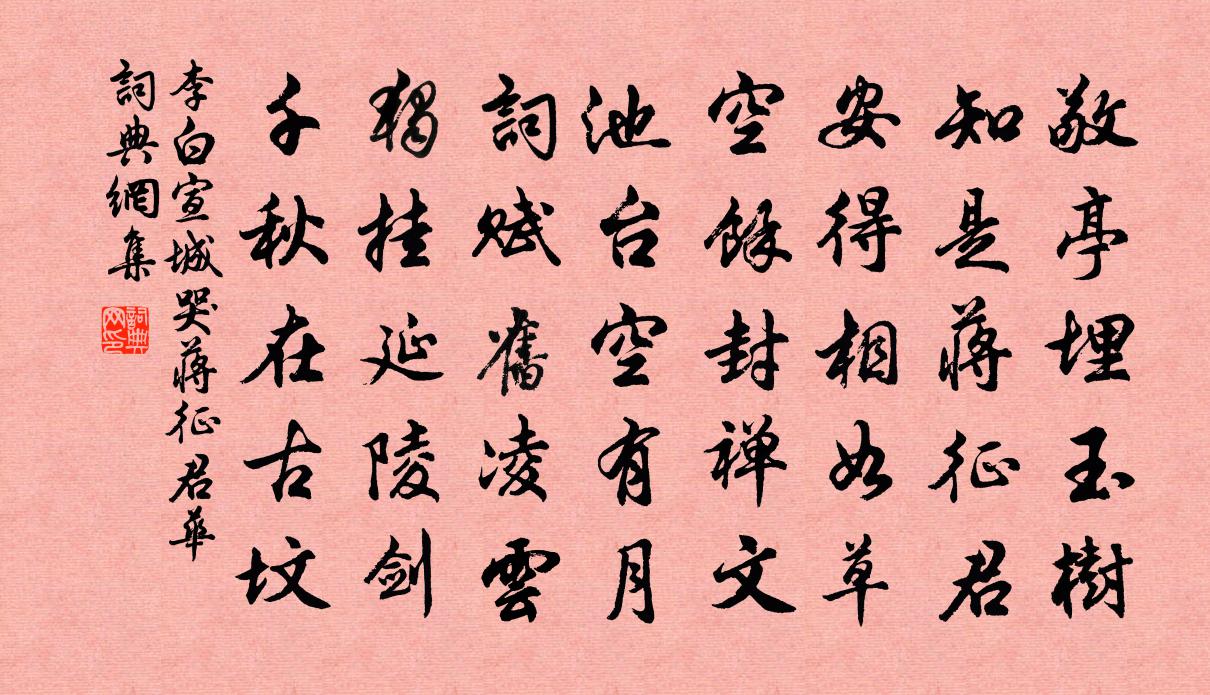 敬亭埋玉樹
知是蔣征君
安得相如草
空餘封禅文
池台空有月
詞賦舊凌雲
獨挂延陵劍
千秋在古坟
李白宣城哭蔣征君華
詞典網集
詞典网印